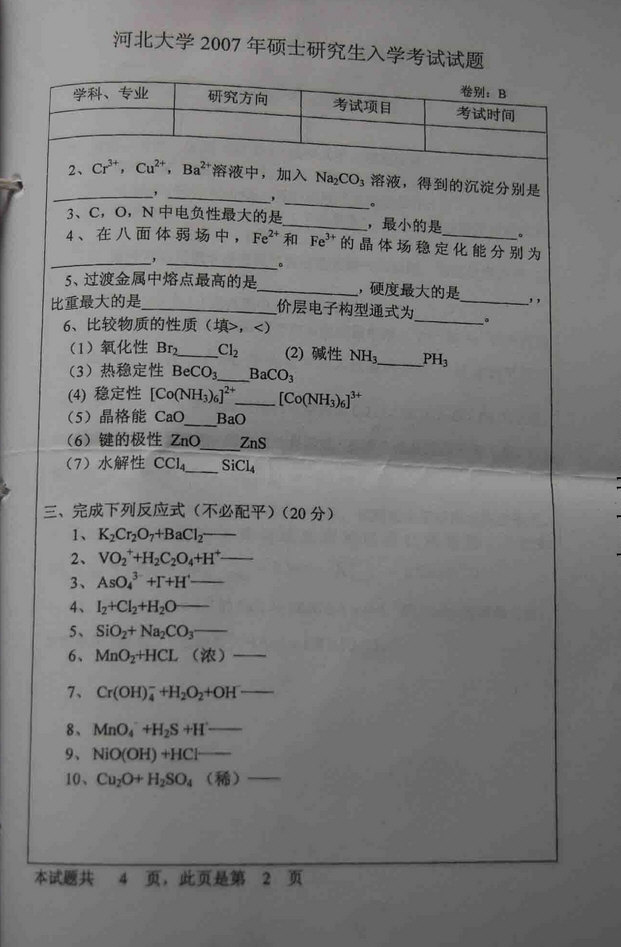 河北大学 2007 年硕士研究生入学考试试题
卷别：B
学科、专业 研究方向 考试项目 考试时间
2、Cr³⁺，Cu²⁺，Ba²⁺溶液中，加入 Na₂CO₃ 溶液，得到的沉淀分别是
______，______，______。
3、C，O，N 中电负性最大的是______，最小的是______。
4、在八面体弱场中，Fe²⁺ 和 Fe³⁺ 的晶体场稳定化能分别为
______，______。
5、过渡金属中熔点最高的是______，硬度最大的是______，，
比重最大的是______价层电子构型通式为______。
6、比较物质的性质（填>，<）
（1）氧化性 Br₂____Cl₂ (2) 碱性 NH₃____PH₃
（3）热稳定性 BeCO₃____BaCO₃
(4) 稳定性 [Co(NH₃)₆]²⁺____[Co(NH₃)₆]³⁺
（5）晶格能 CaO____BaO
（6）键的极性 ZnO____ZnS
（7）水解性 CCl₄____ SiCl₄
三、完成下列反应式（不必配平）（20 分）
1、 K₂Cr₂O₇+BaCl₂——
2、 VO₂⁺+H₂C₂O₄+H⁺——
3、 AsO₄³⁻+I⁻+H⁺——
4、 I₂+Cl₂+H₂O——
5、 SiO₂+ Na₂CO₃——
6、 MnO₂+HCL （浓）——
7、 Cr(OH)₄⁻+H₂O₂+OH⁻——
8、 MnO₄⁻+H₂S +H⁺——
9、 NiO(OH) +HCl——
10、Cu₂O+ H₂SO₄ （稀）——
本试题共 4 页，此页是第 2 页